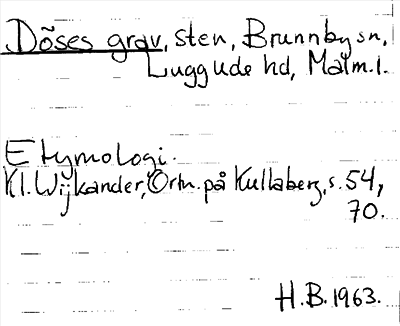 Döses grav, sten, Brunnby sn,
Luggude hd, Malm.l.
Etymologi.
Kl. Wijkander, Ortn. på Kullaberg, s. 54,
70.
H.B. 1963.